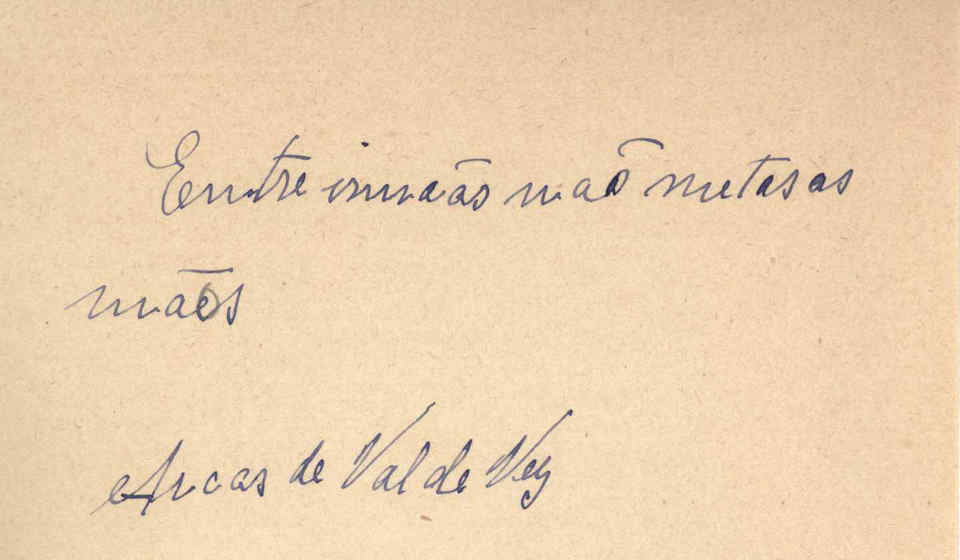 Entre irmãos não metas as
mãos
Arcos de Val de Vez